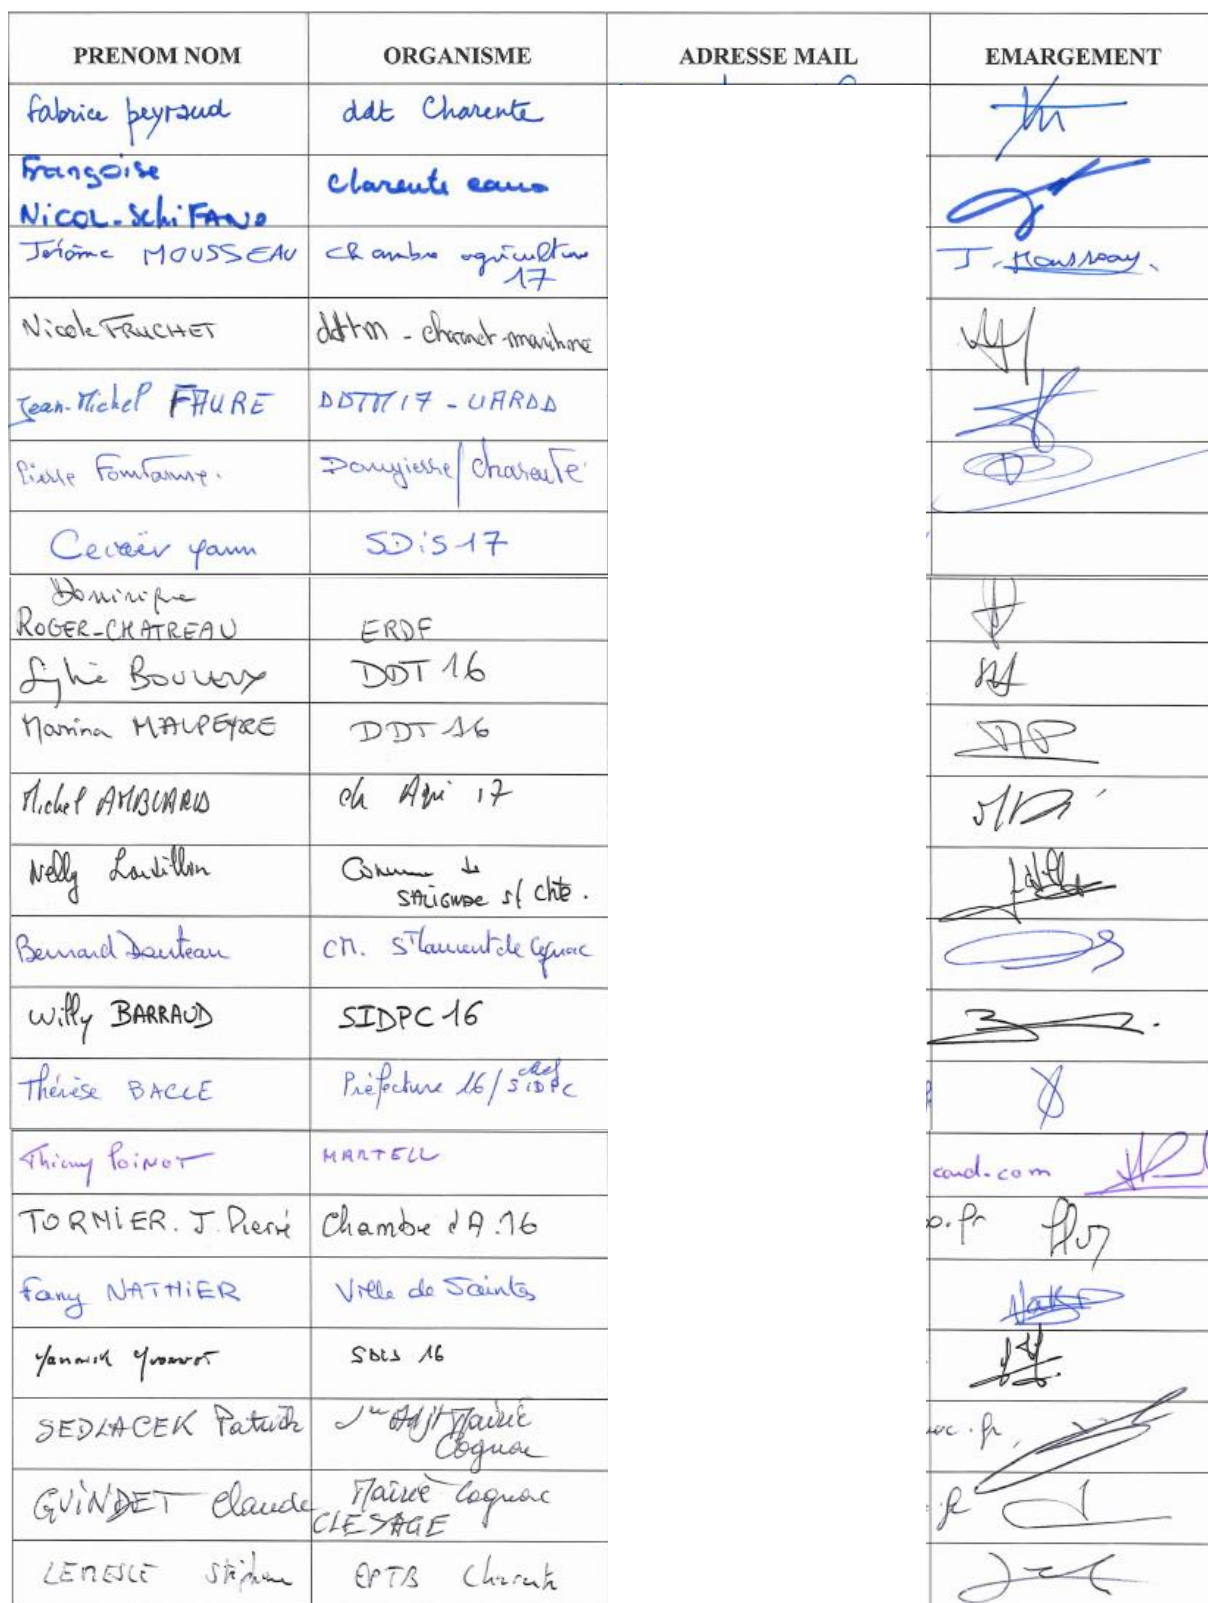 PRENOM NOM ORGANISME ADRESSE MAIL EMARGEMENT
fabrice peyraud ddt Charente
Françoise
NICOL-SchiFANO Charente eaux
Jérôme MOUSSEAU Chambre agriculture
17 J. Mousseau.
Nicole FRUCHET ddtm - charent-maritime
Jean-Michel FAURE DDTM17 - UARDD
Pierre /Charente
yann SDiS 17
Dominique
ROGER-CHATREAU ERDF
Sylvie DDT 16
Marina MALPEYRE DDT 16
Michel AMBLARD ch Agri 17
Nelly Commune de
s/ Chte.
Bernard Dauteau CM. St Laurent de Cognac
Willy BARRAUD SIDPC 16
Thérèse BACLE Préfecture 16/ chef
SIDPC
Thierry POINOT MARTELL card.com
TORMIER. J. Pierre Chambre d'A.16 o.fr
Fany NATHIER Ville de Saintes
Yannick Yvonnet SDIS 16
SEDLACEK Patrick 1er Adjt Mairie
Cognac .fr
GUINDET Claude Mairie Cognac
CLE SAGE
LEMESLE Stéphane EPTB Charente